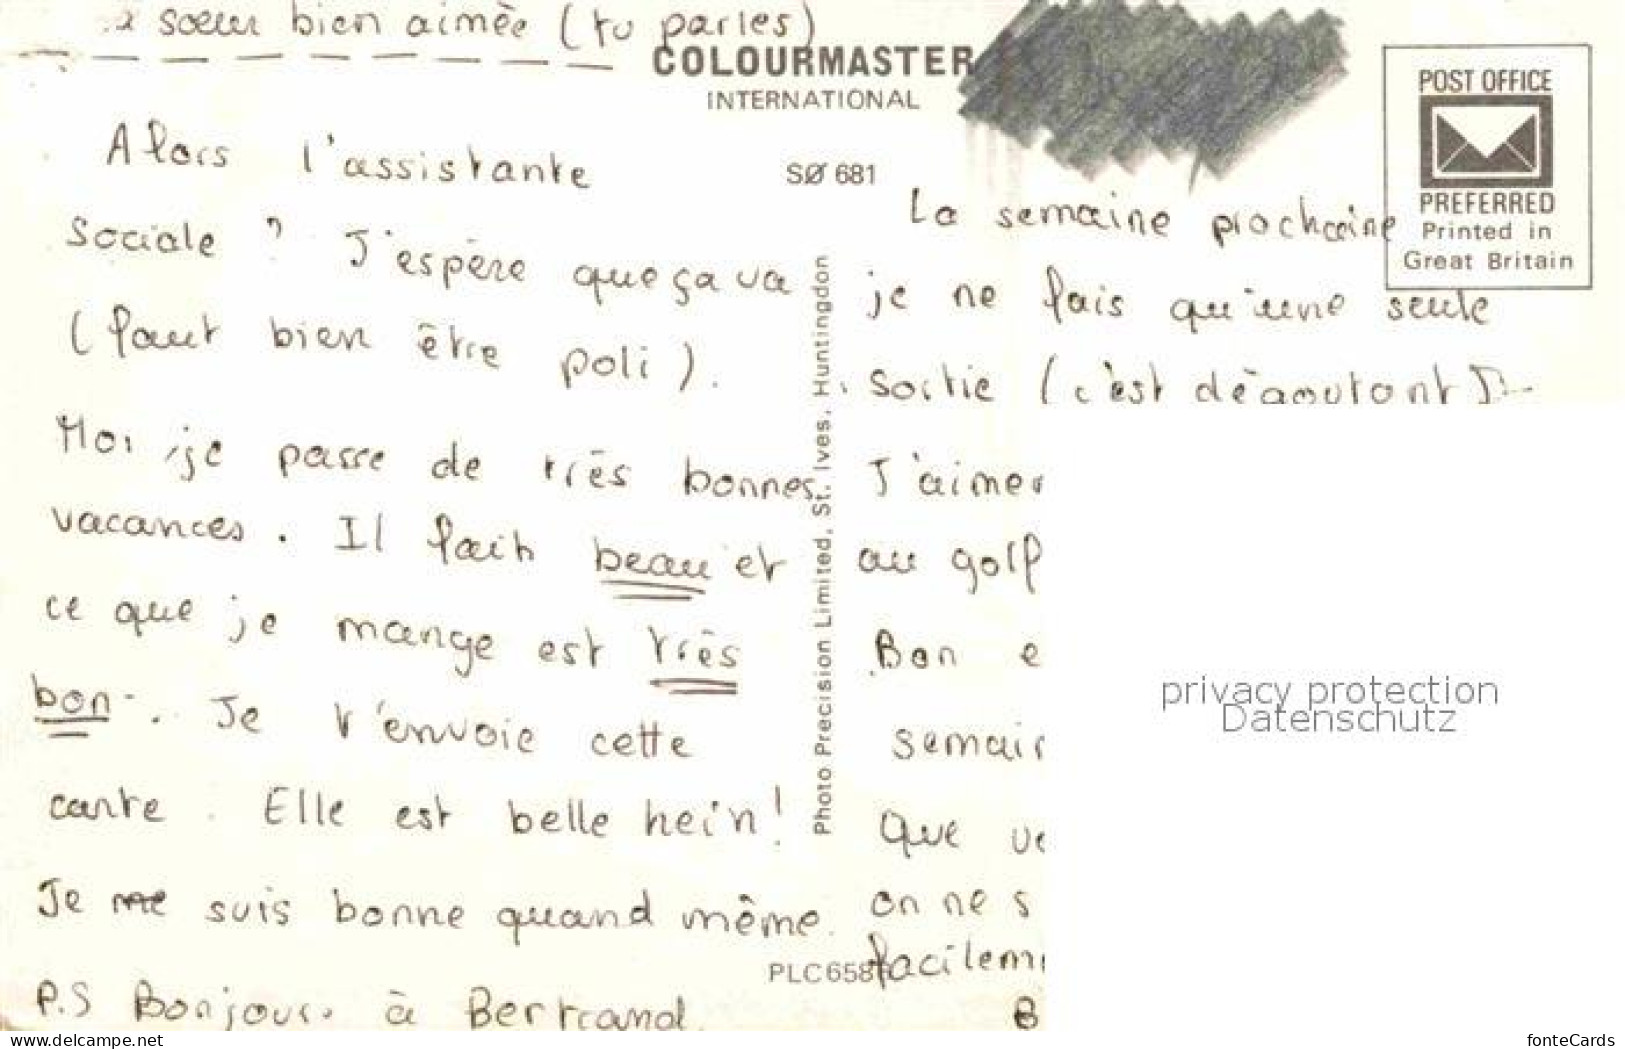 sœur bien aimée (tu parles)
COLOURMASTER
INTERNATIONAL
SØ 681
POST OFFICE
PREFERRED
Printed in
Great Britain
Alors l'assistante
Sociale ? J'espère que ça va
(faut bien être poli).
Moi, je passe de très bonnes
vacances. Il fait beau et
ce que je mange est très
bon. Je t'envoie cette
carte. Elle est belle hein!
Je me suis bonne quand même.
P.S Bonjour à Bertrand
Photo Precision Limited, St. Ives, Huntingdon
PLC658
La semaine prochaine
je ne fais qu'une seule
Sortie (c'est dégoutant)
J'aimer
au golf
Bon e
semain
Que ve
on ne s
facilem
B
privacy protection
Datenschutz
www.delcampe.net
fonteCards